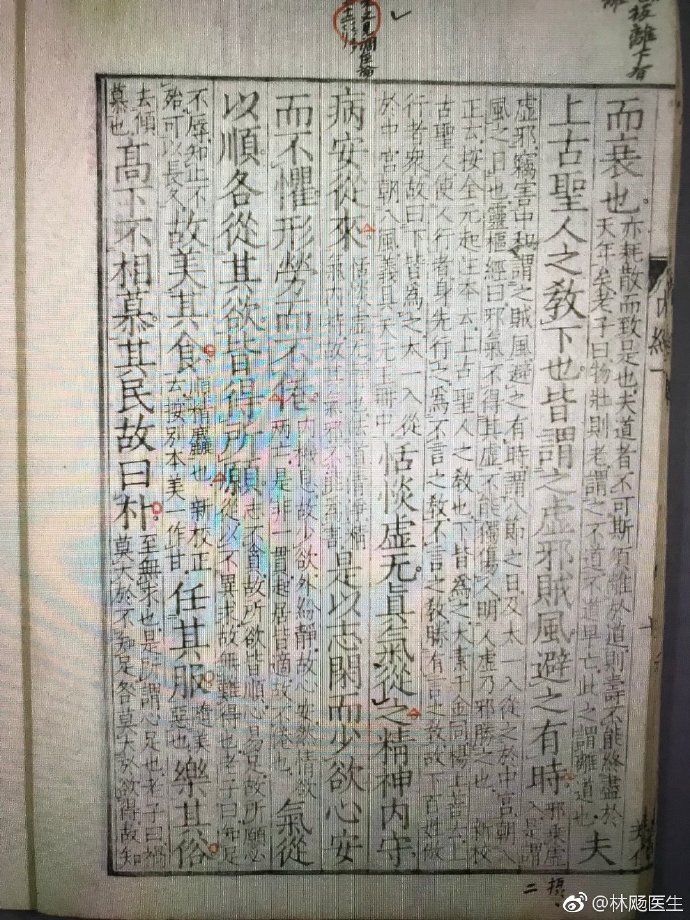 而衰也
亦耗散而致是也夫道者不可斯須離於道則壽不能終盡於
天年矣老子曰物壯則老謂之不道不道早亡此之謂離道也
夫
上古聖人之敎下也皆謂之虛邪賊風避之有時
邪乘虛
入是謂
虛邪竊害中和謂之賊風避之有時謂八節之日及太一入從之於中宮朝八
風之日也靈樞經曰邪氣不得其虛不能獨傷人明人虛乃邪勝之也新校
正云按全元起注本云上古聖人之敎也下皆爲之太素千金同楊上善云上
古聖人使人行者身先行之爲不言之敎不言之敎勝有言之敎故下百姓倣
行者衆故曰下皆爲之太一入從
於中宮朝八風義具天元玉冊中
恬惔虛无眞氣從之精神内守
病安從來
恬惔虛无靜也法道清淨精
氣内持故其虛邪不能爲害
是以志閑而少欲心安
而不懼形勞而不倦
内機息故少欲外紛靜故心安然情欲
兩亡是非一貫起居皆適故不倦也
氣從
以順各從其欲皆得所願
志不貪故所欲皆順心易足故所願必
從以不異求故無難得也老子曰知足
不辱知止不
殆可以長久
故美其食
順精麤也新校正
云按別本美一作甘
任其服
隨美
惡也
樂其俗
去傾
慕也
高下不相慕其民故曰朴
至無求也是所謂心足也老子曰禍
莫大於不知足咎莫大於欲得故知
二
@林飏医生